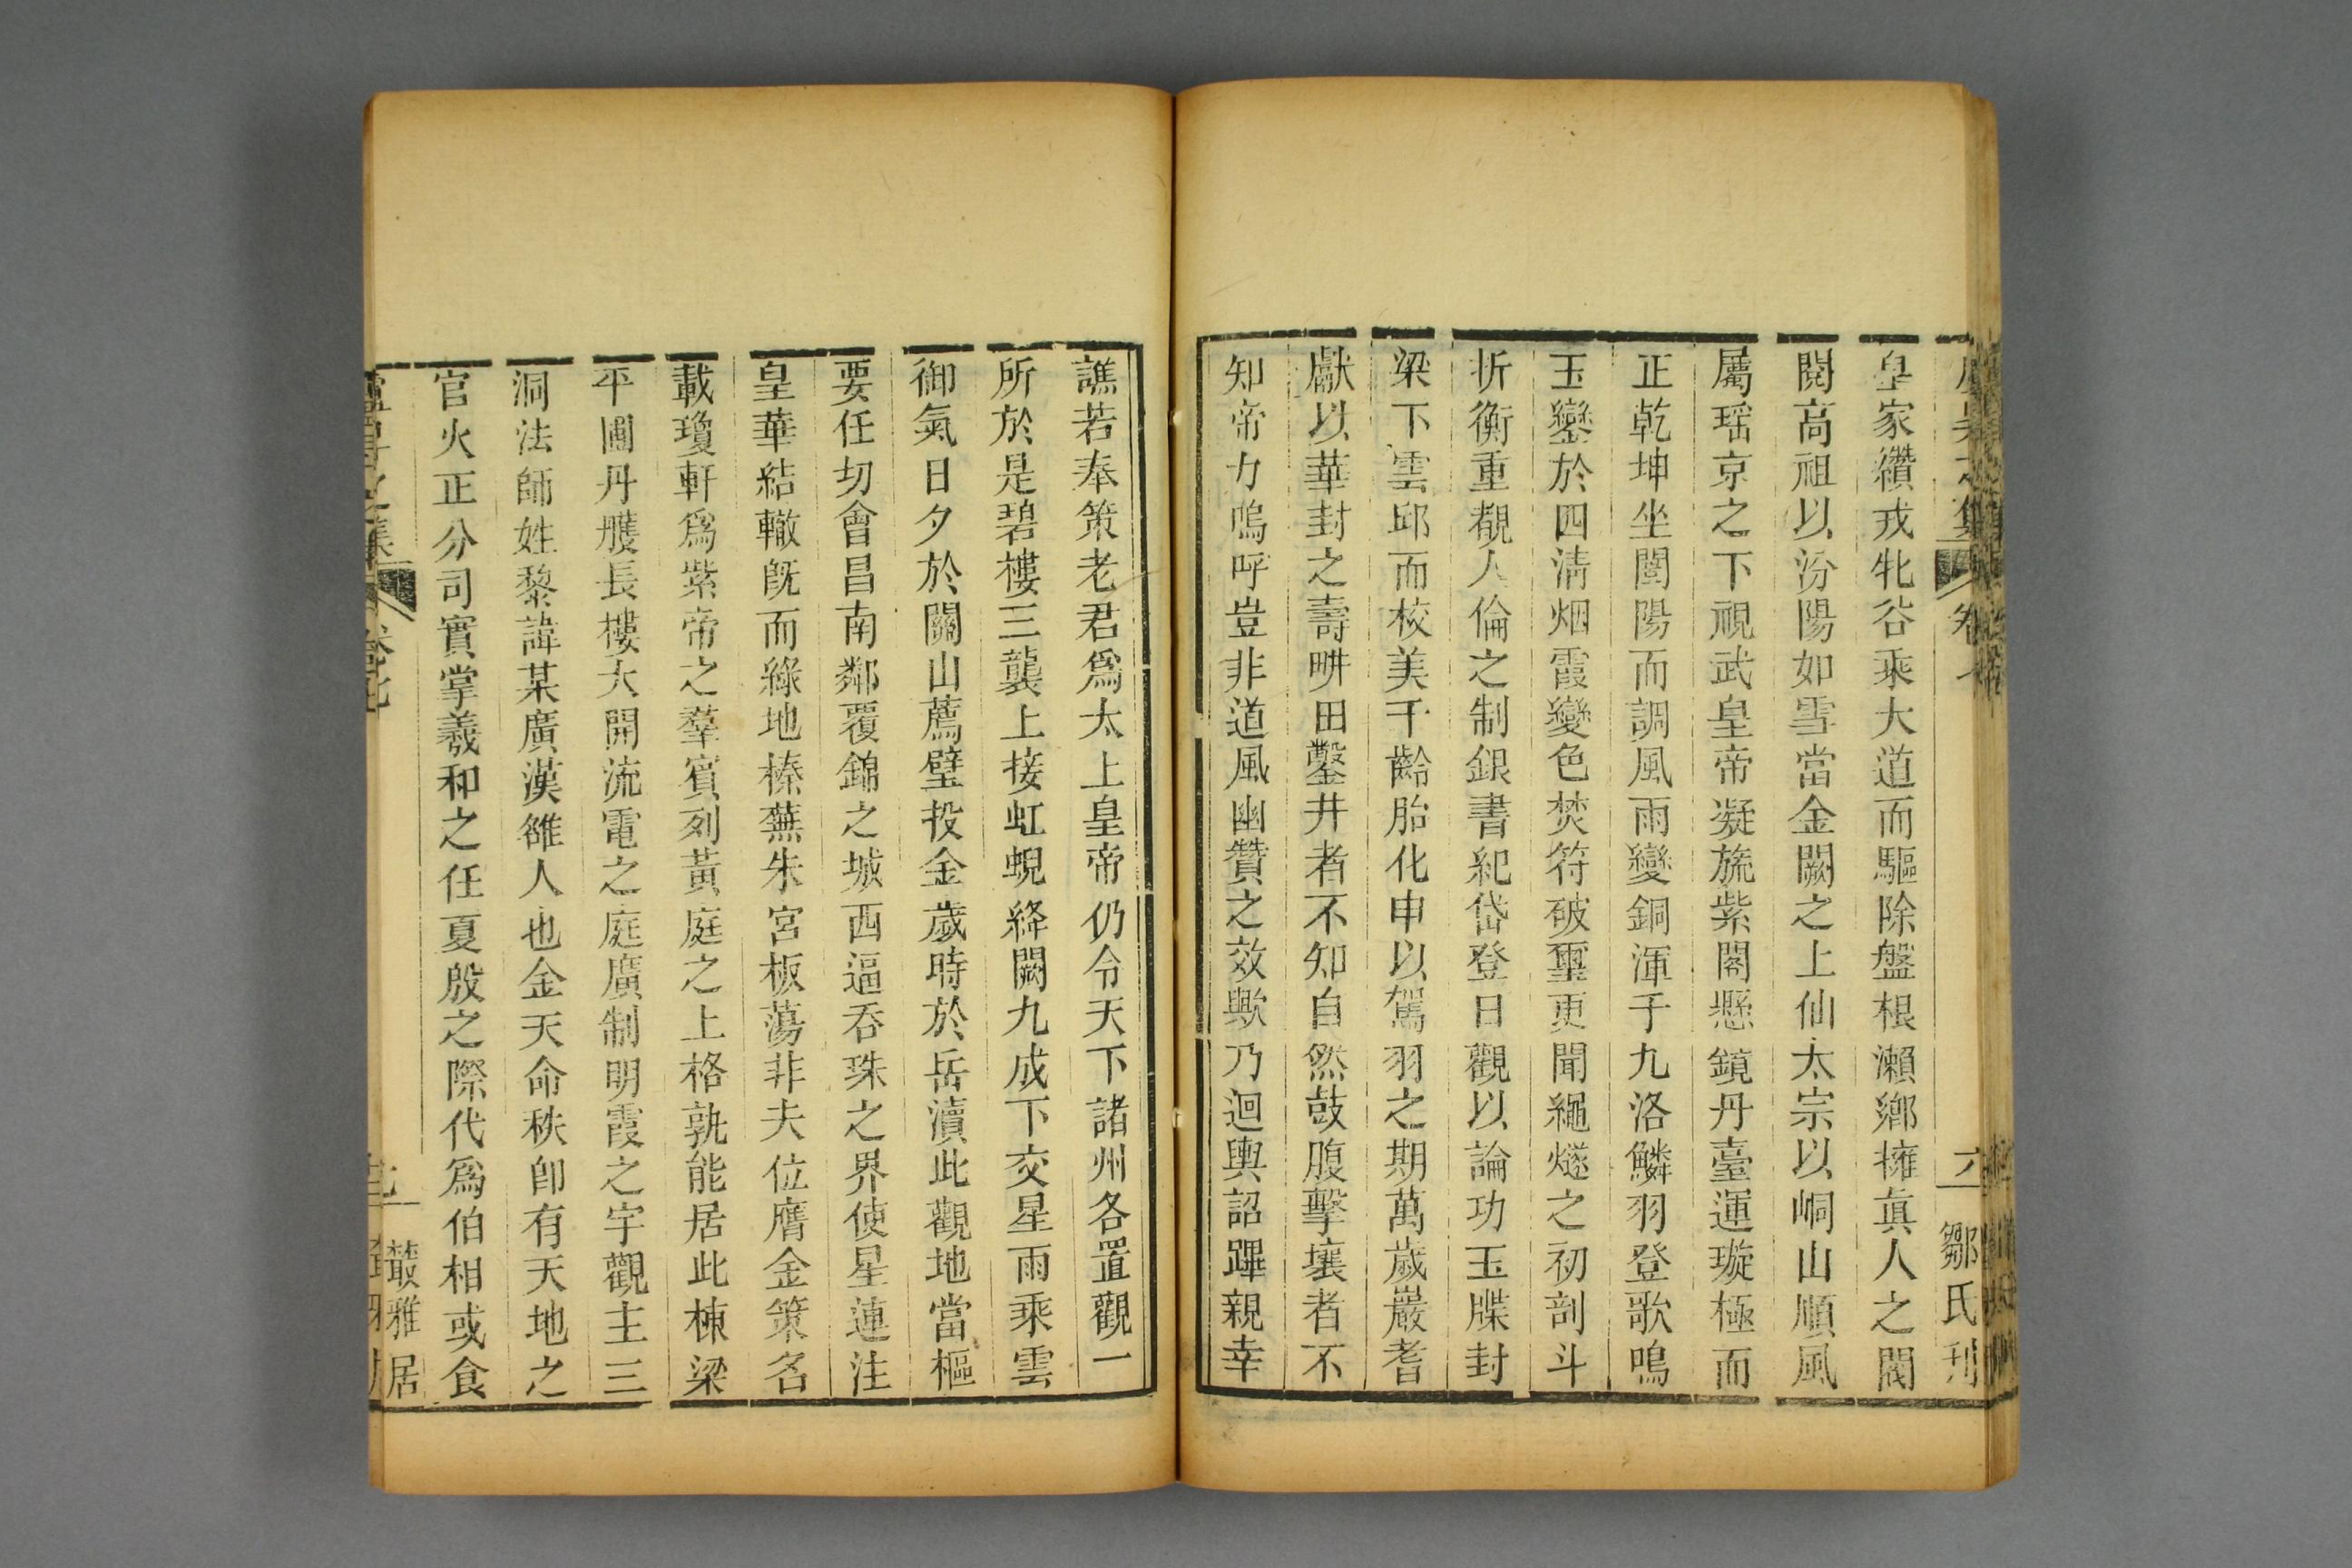 卷七
六
鄒氏刋
皇家纘戎牝谷乘大道而驅除盤根瀨鄉擁真人之閥
閱高祖以汾陽如雪當金闕之上仙太宗以峒山順風
屬瑶京之下視武皇帝凝旒紫閣懸鏡丹臺運璇極而
正乾坤坐闓陽而調風雨變銅渾于九洛鱗羽登歌鳴
玉鑾於四清烟霞變色焚符破璽更聞繩燧之初剖斗
折衡重覩人倫之制銀書紀岱登日觀以論功玉牒封
梁下雲邱而校美千齡胎化申以駕羽之期萬歲巖耆
獻以華封之壽畊田鑿井者不知自然鼓腹擊壤者不
知帝力嗚呼豈非道風幽贊之效歟乃迴輿詔蹕親幸
譙若奉策老君爲太上皇帝仍令天下諸州各置觀一
所於是碧樓三襲上接虹蜺絳闕九成下交星雨乘雲
御氣日夕於關山薦璧投金歲時於岳瀆此觀地當樞
要任切會昌南鄰覆錦之城西逼吞珠之界使星蓮注
皇華結轍旣而綠地榛蕪朱宮板蕩非夫位膺金策名
載瓊軒爲紫帝之羣賓列黃庭之上格孰能居此棟梁
平圃丹雘長樓大開流電之庭廣制明霞之宇觀主三
洞法師姓黎諱某廣漢雒人也金天命秩卽有天地之
官火正分司實掌羲和之任夏殷之際代爲伯相或食
卷七
叢雅居